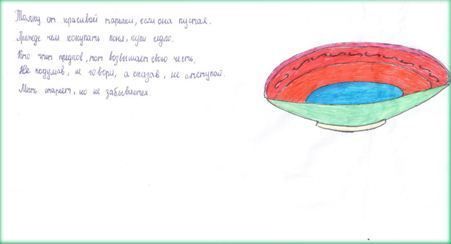 Толку от красивой тарелки, если она пустая.
Прежде чем покупать коня, купи седло.
Кто чтит предков, тот возвышает свою честь.
Не подумав, не говори, а сказав, не отступай.
Месть стареет, но не забывается.